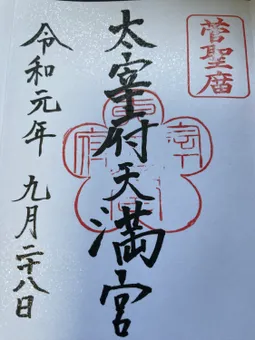 菅聖廟
太宰府天満宮
令和元年 九月二十八日